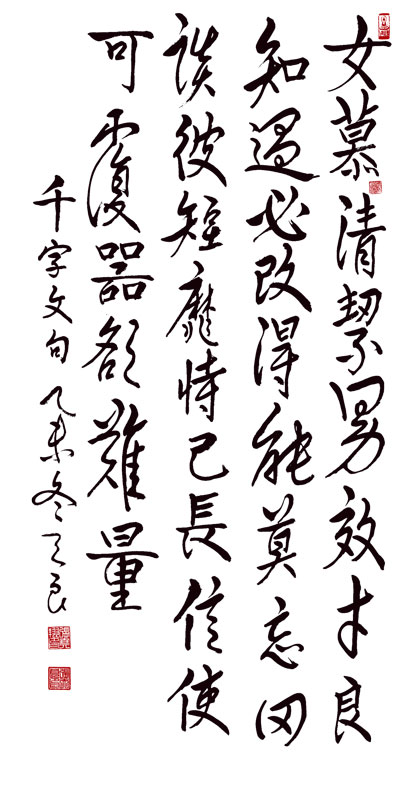 女慕清絜男效才良
知過必改得能莫忘罔
談彼短靡恃己長信使
可覆器欲難量
千字文句 乙未冬天良